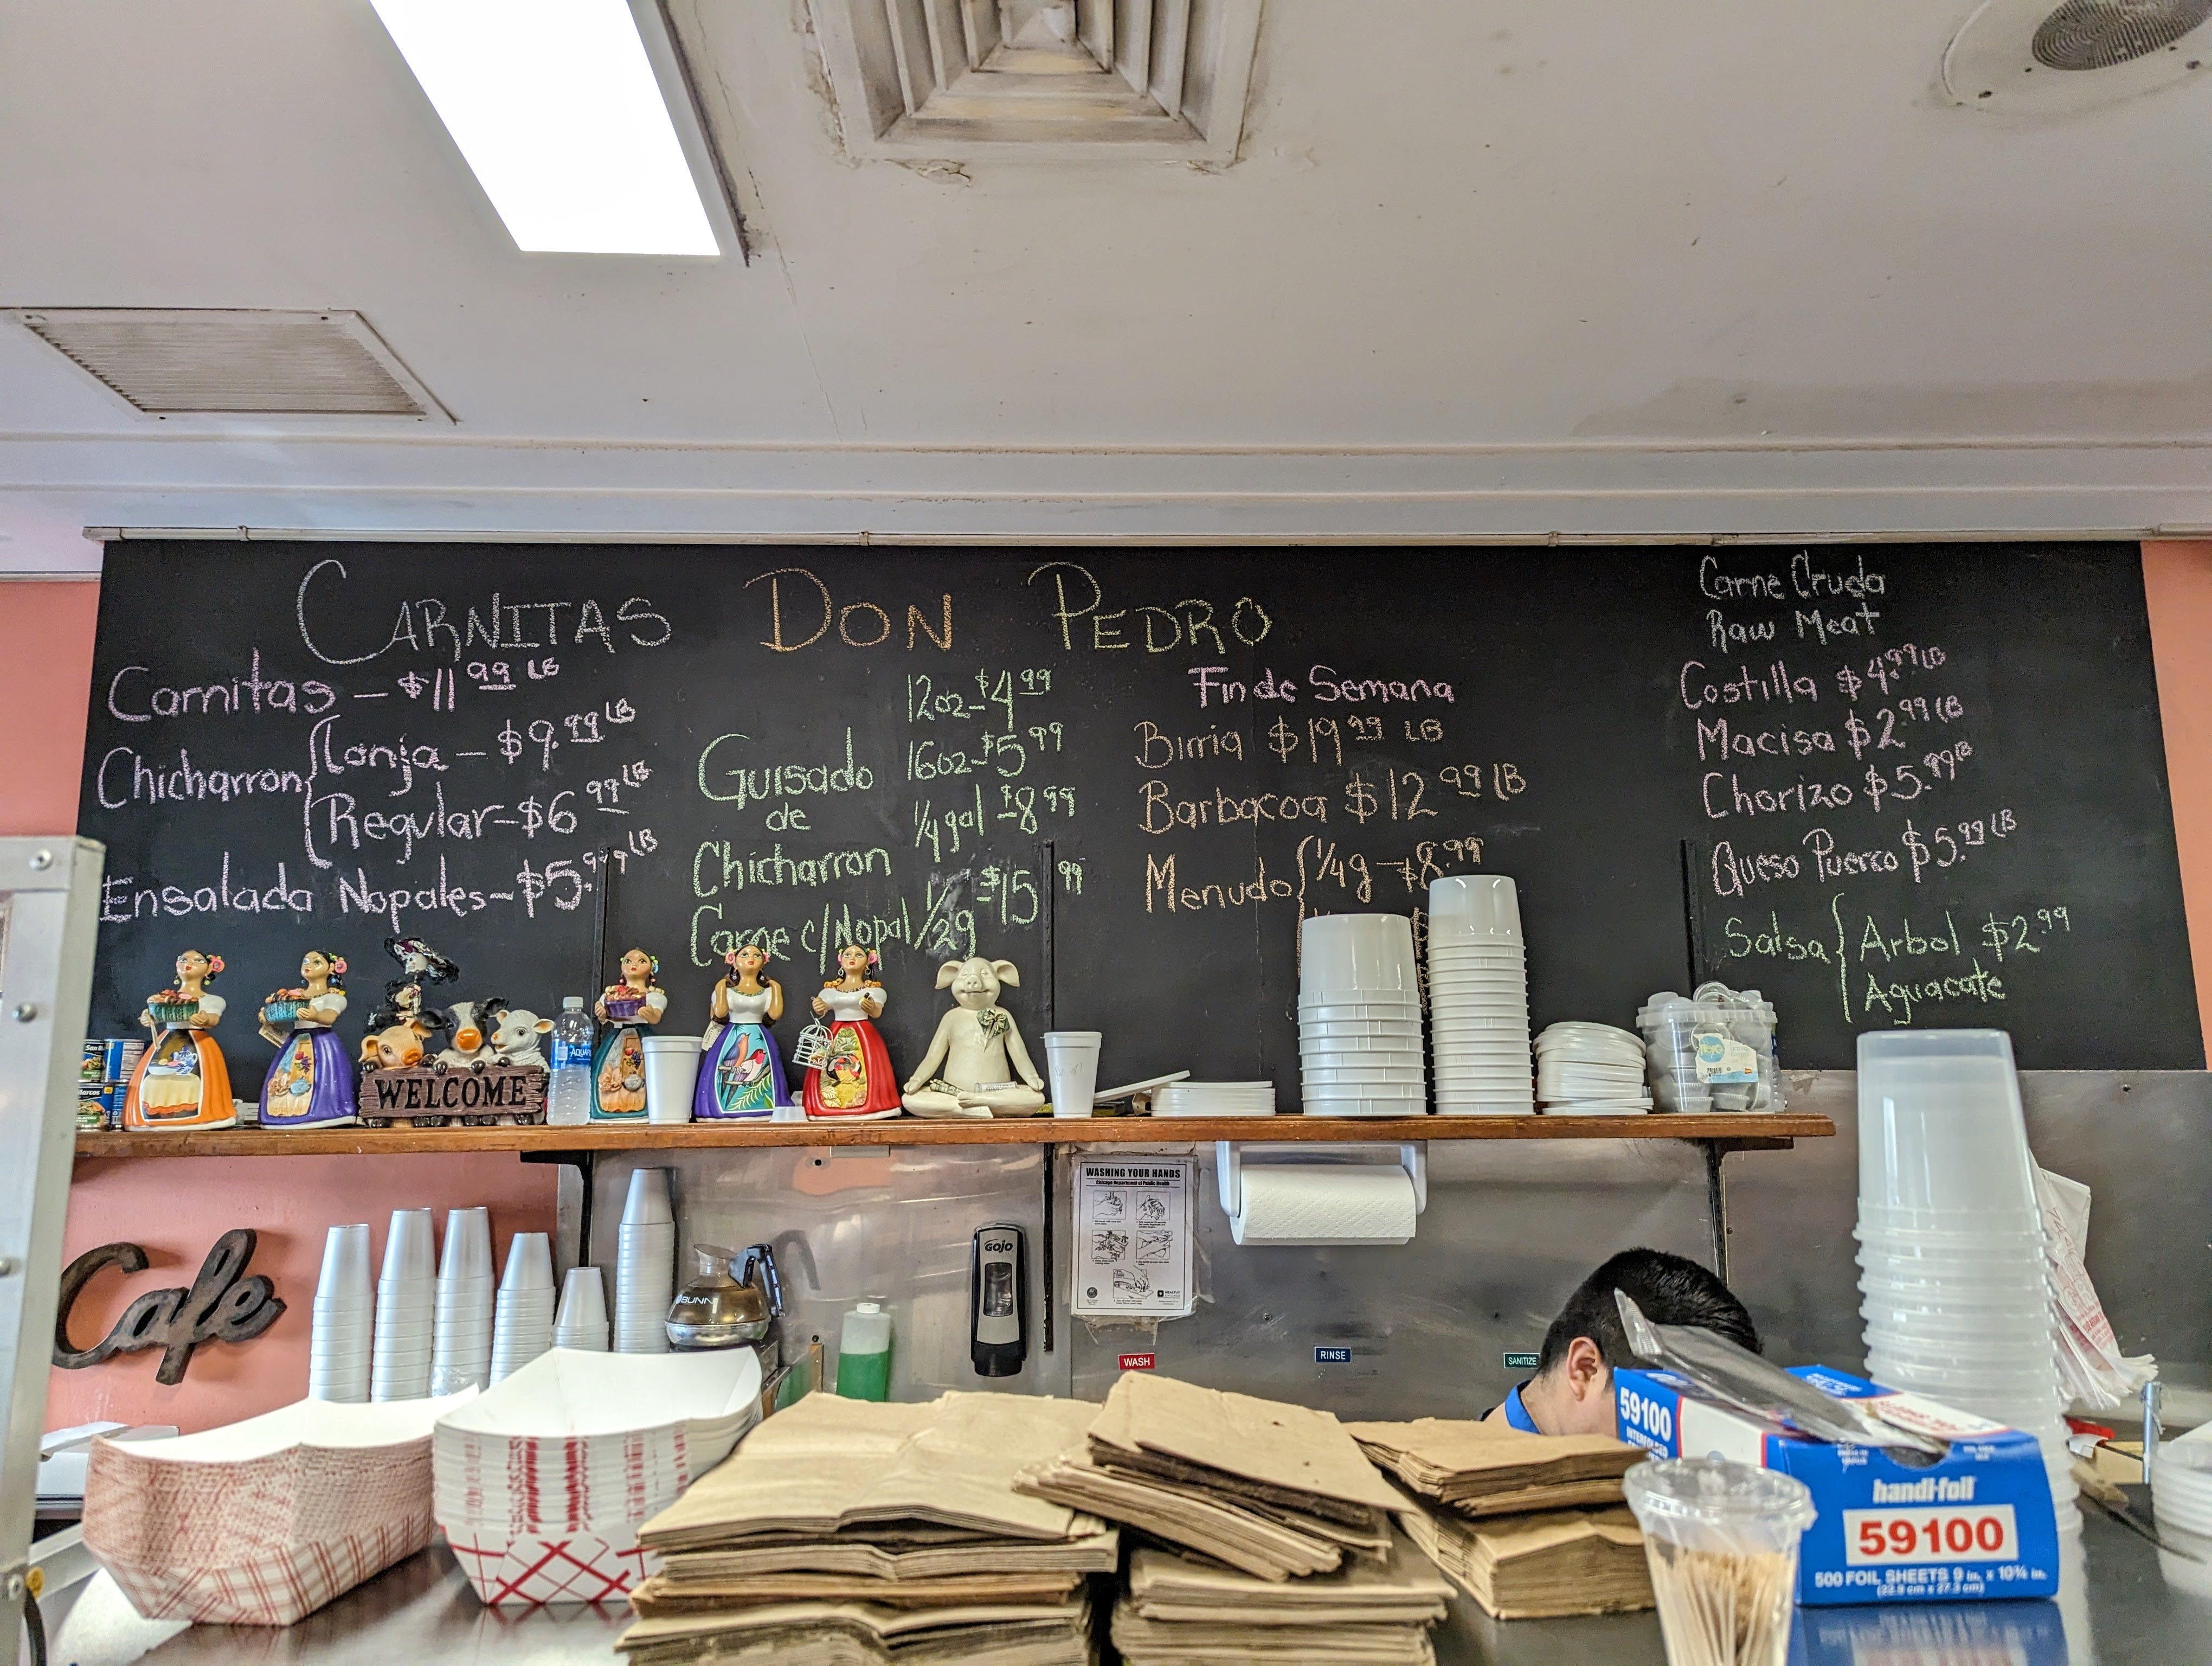 CARNITAS DON PEDRO
Carnitas - $11.99 LB
Chicharron { Lonja - $9.99 LB
Regular - $6.99 LB
Ensalada Nopales - $5.99 LB
Guisado
de
Chicharron
Carne c/Nopal
12oz - $4.99
16oz - $5.99
1/4 gal - $8.99
1/2 g - $15.99
Fin de Semana
Birria $19.99 LB
Barbacoa $12.99 LB
Menudo { 1/4g - $8.99
Carne Cruda
Raw Meat
Costilla $4.99 LB
Macisa $2.99 LB
Chorizo $5.99 LB
Queso Puerco $5.99 LB
Salsa { Arbol $2.99
Aguacate
WELCOME
Cafe
BUNN
GOJO
WASHING YOUR HANDS
Chicago Department of Public Health
WASH
RINSE
SANITIZE
59100
handi-foil
59100
500 FOIL SHEETS 9 in. x 10¾ in.
(22.9 cm x 27.3 cm)